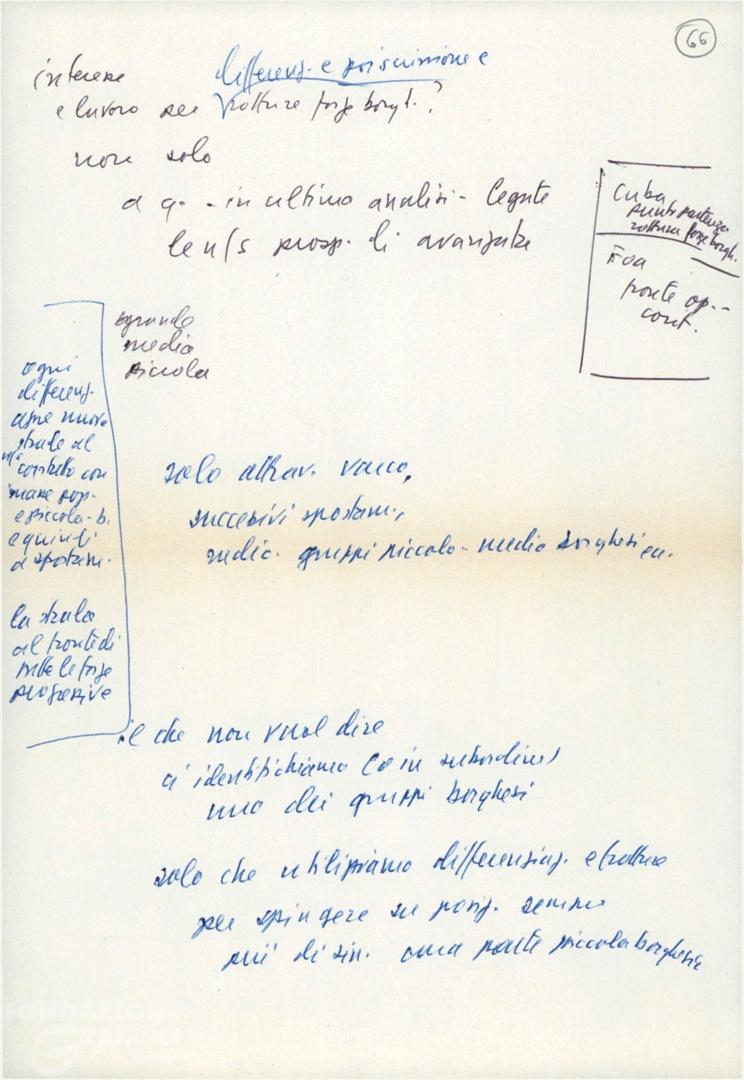 66
differenz. e poi scissione e
interesse
e lavoro per rotture forze borgh.?
non solo
a q. - in ultima analisi - legate
le n/s prosp. di avanzata
Cuba
punti partenza
rottura forze borgh.
Foa
fronte op.-
cont.
grande
media
piccola
ogni
differenz.
apre nuove
strade al
n/s contatto con
masse pop.
e piccolo-b.
e quindi
a spostam.
la strada
al fronte di
tutte le forze
progressive
solo attrav. varco,
successivi spostam.,
radic. gruppi piccolo-medio borghesi ecc.
il che non vuol dire
ci identifichiamo (o in subordine)
uno dei gruppi borghesi
solo che utilizziamo differenziaz. e fratture
per spingere su posiz. sempre
più di sin. una parte piccola borghesia
FONDAZIONE
GRAMSCI